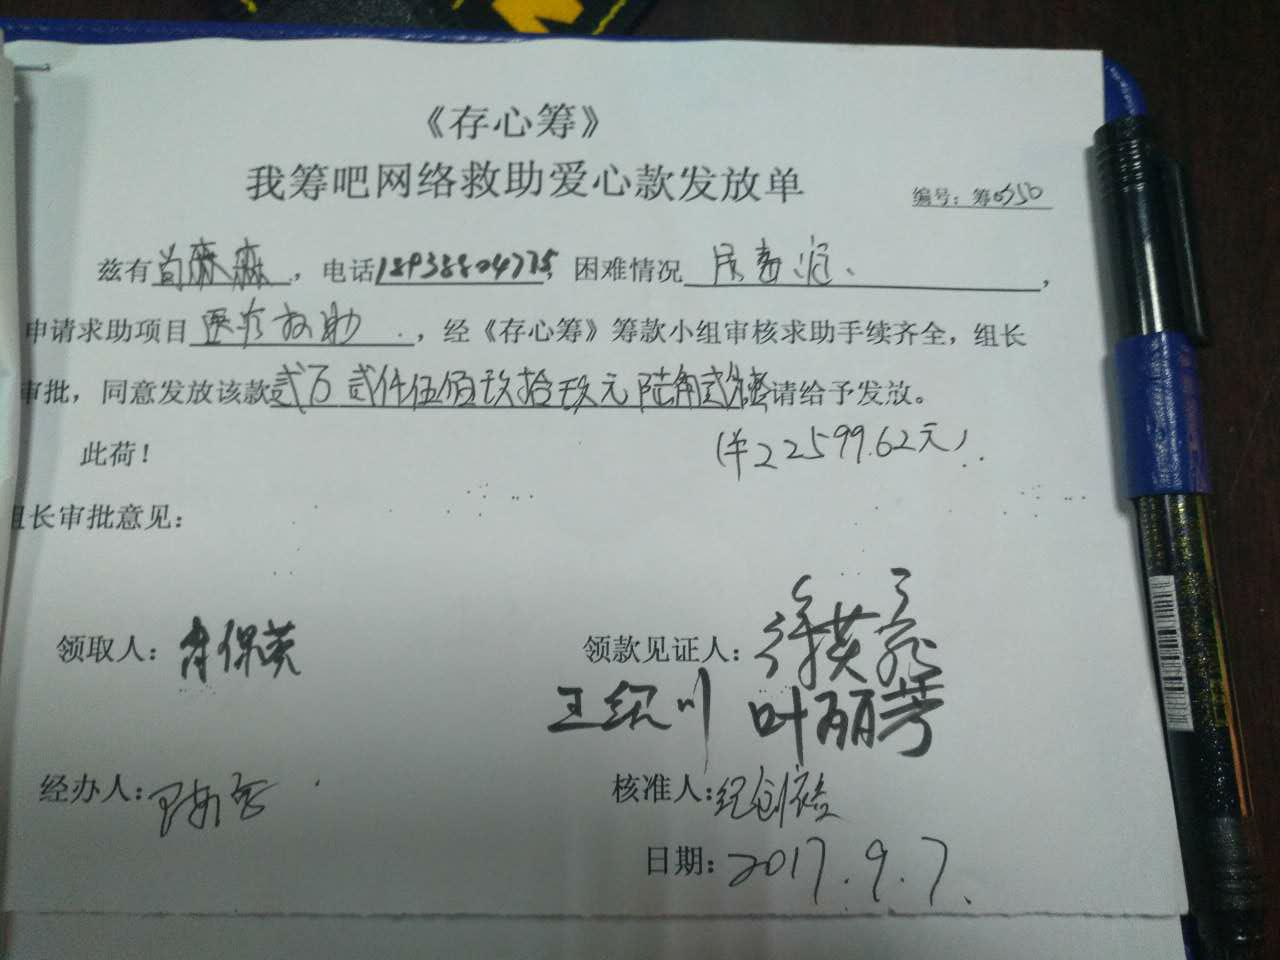 《存心筹》
我筹吧网络救助爱心款发放单
编号：筹0350
兹有肖森森，电话18938804775，困难情况
申请求助项目医疗救助，经《存心筹》筹款小组审核求助手续齐全，组长
审批，同意发放该款贰万贰仟伍佰玖拾玖元陆角贰分整请给予发放。
此荷！
(¥22599.62元)
组长审批意见：
领取人：肖保英
领款见证人：
王绍川 叶丽芳
经办人：
核准人：
日期：2017.9.7.